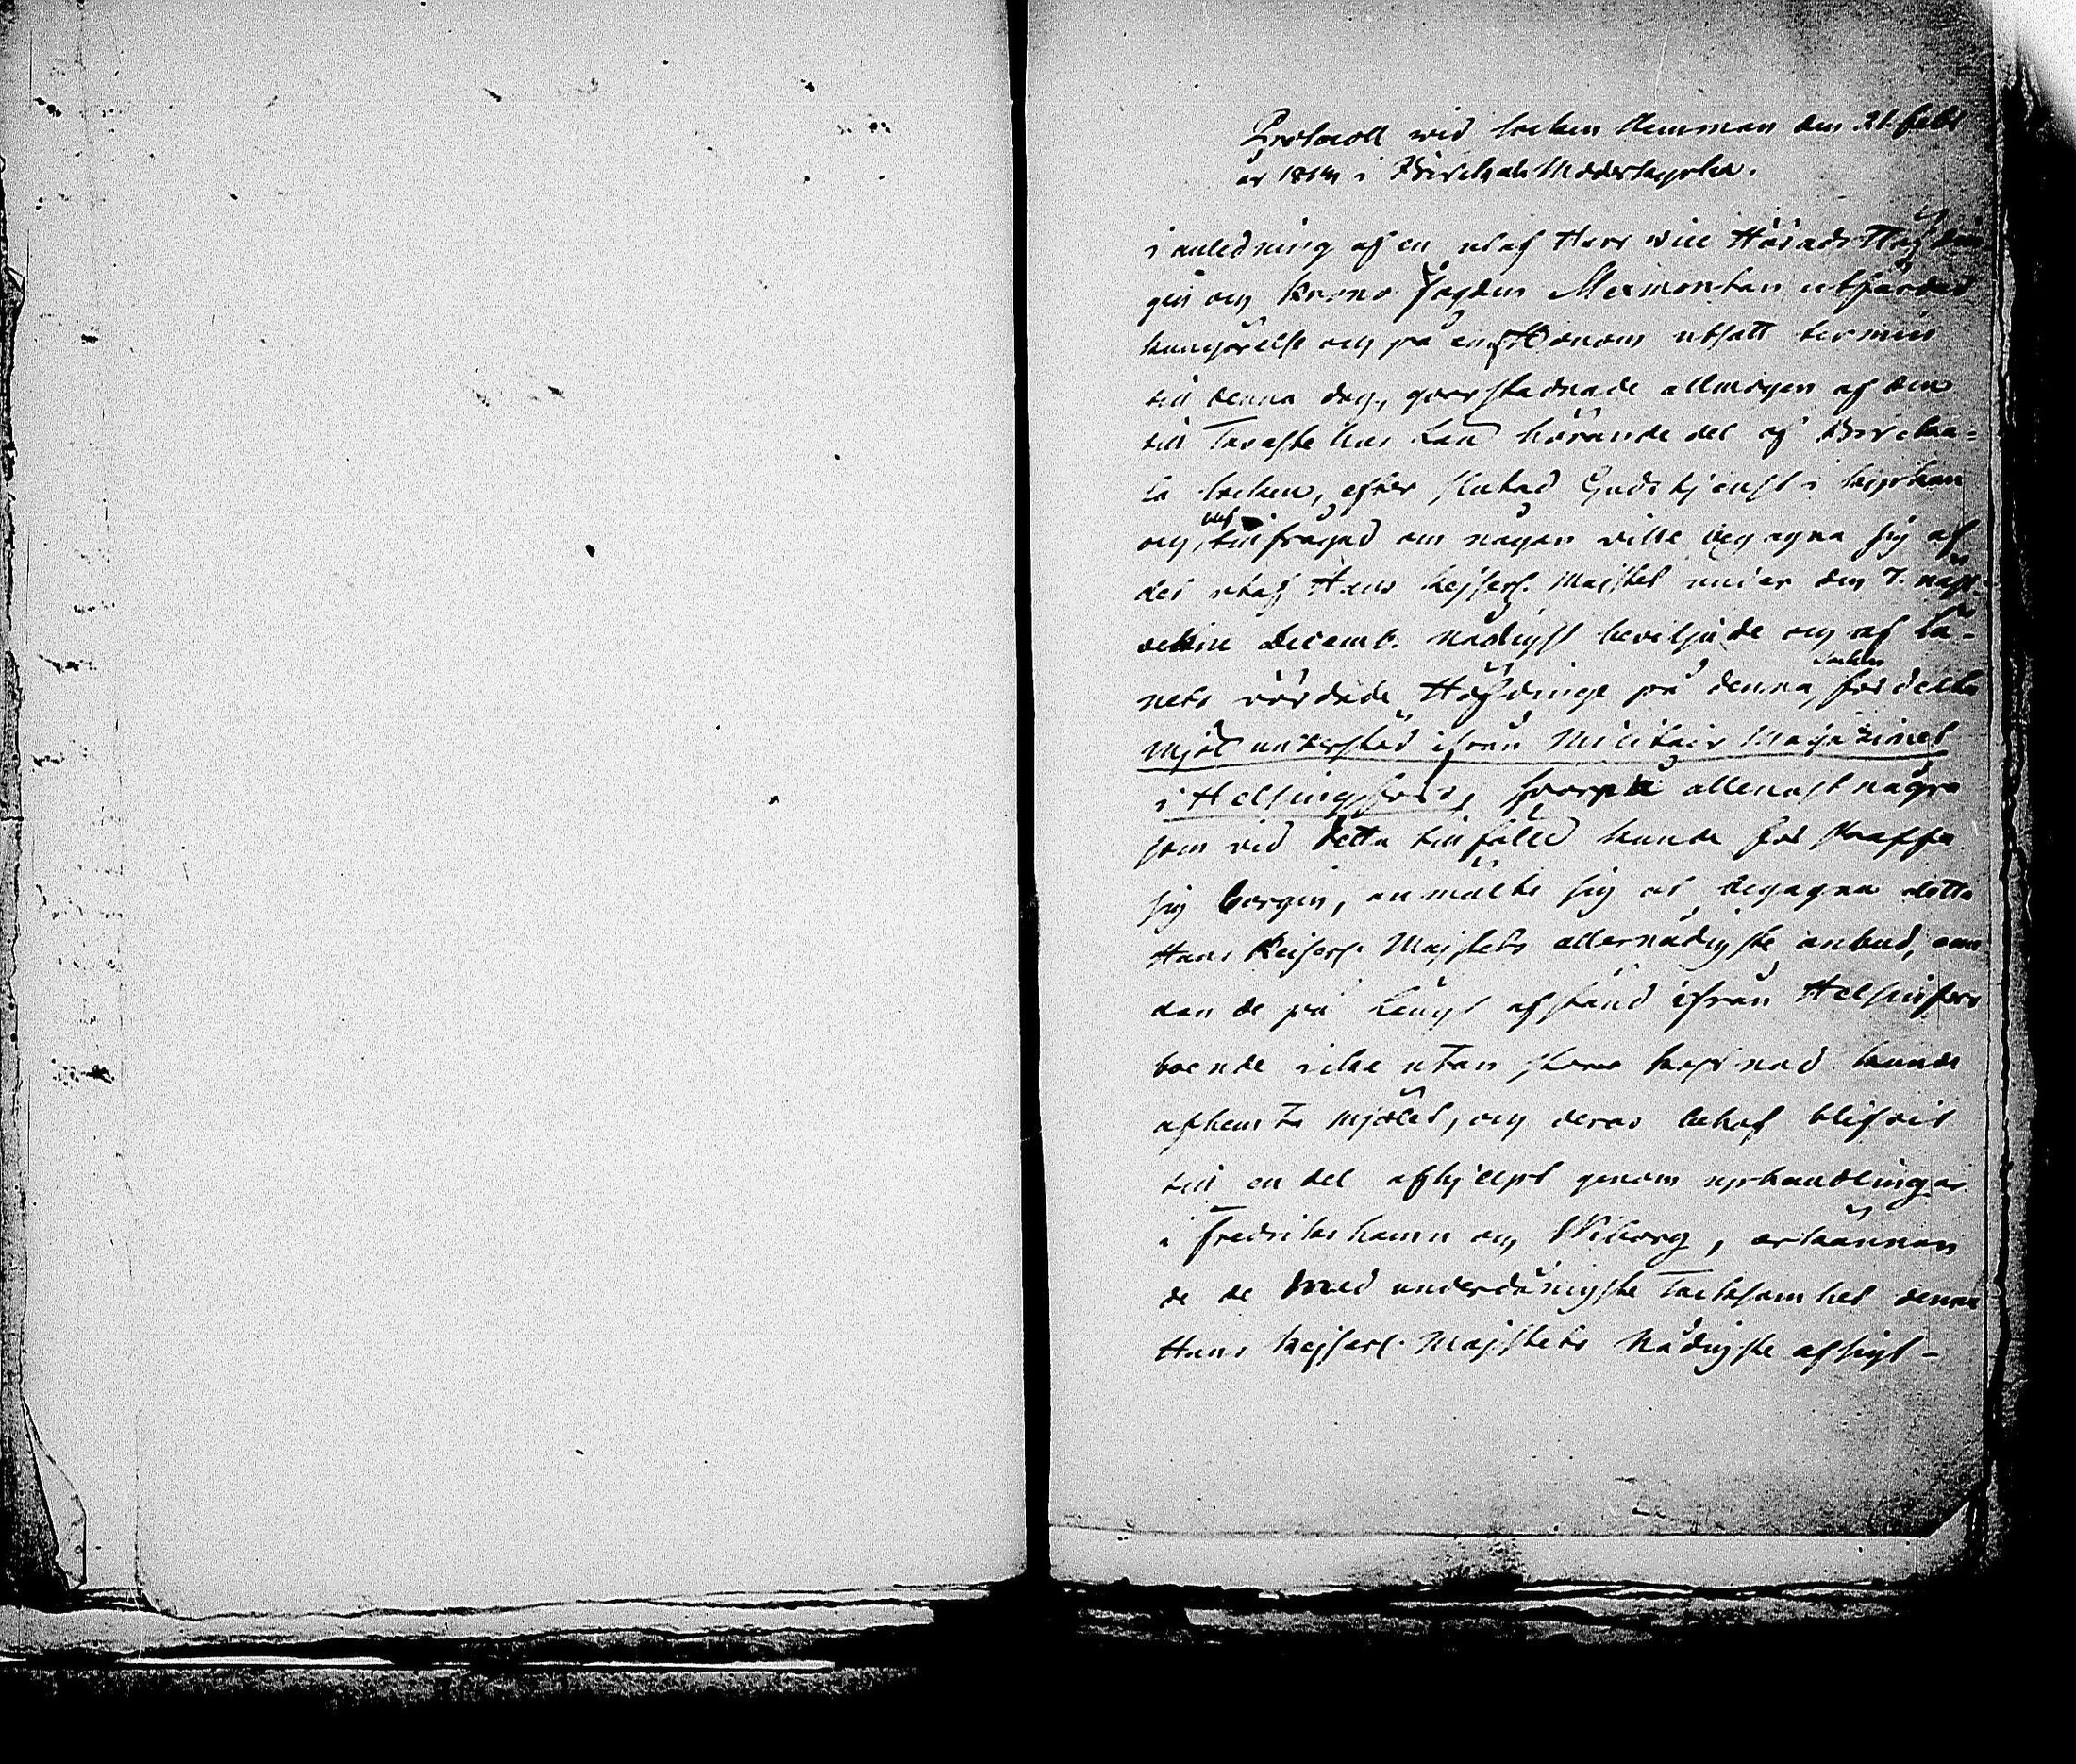 Protocoll wid Socken Stemman den 21. Febr
år 1814 i Birckala Moderkyrka.
i anledning af en utaf Herr Vice Häradshöfdin
gen och Krono Fogden Mexmontan utfärdad
kungörelse och på Honom utsatt termin
till denna dag, qvarstadnade allmogen af den
till Tavastehus Län hörande del af Bircka=
la Socken, efter slutad Gudstjenst i kyrkan
och blef tillfrågad om någon ville begagna sig af
det utaf Hans Kejserl. Majstet under den 7. näst-
vekne Decemb. Nådigst beviljade och af Lä-
nets vördade Höfdinge på denna Socken fördelte
Mjöl understöd ifrån Militair Magazinet
i Helsingfors, hvarpå allenast några
som vid detta tillfälle kunde förskaffa
sig borgen, anmälte sig at begagna detta
Hans Keiserl. Majstets allernådigste anbud, emä
dan de på långt afstånd ifrån Helsinfors
boende icke utan stora kostnad kunde
afhemta mjölet, och deras behof blifvit
till en del afhjelpt genom uphandlingar
i Fredrikshamn och Wiborg, erkännan
de de med underdånigste Tacksamhet denna
Hans Kejserl. Majstets Nådigste afsigt-